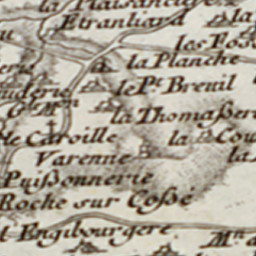 la Plaisance
Etranliard
la
les Fos
la Planche
le Pt. Breuil
uderie
Gd. Mon
la Thomaßer
le Caroille
la Cou
Varenne
la
Puißonnerie
Roche sur Coßé
t Engibourgere
Mn. d